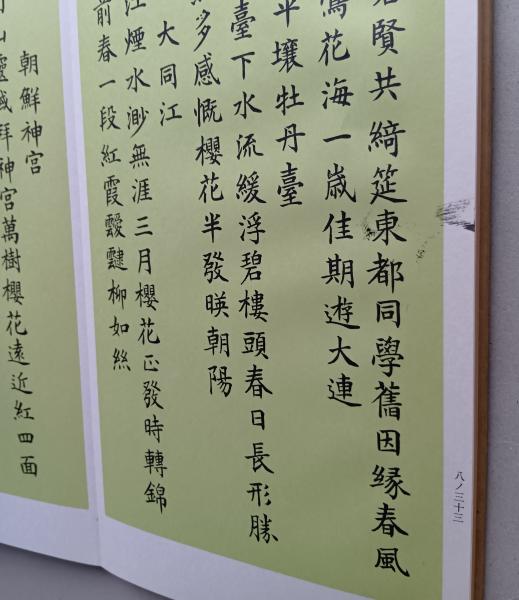 賢共綺筵東都同學舊因緣春風
花海一歲佳期遊大連
平壤牡丹臺
臺下水流緩浮碧樓頭春日長形勝
多感慨櫻花半發暎朝陽
大同江
江煙水渺無涯三月櫻花正發時轉錦
前春一段紅霞靉靆柳如絲
朝鮮神宮
靈域拜神宮萬樹櫻花遠近紅四面
八ノ三十三